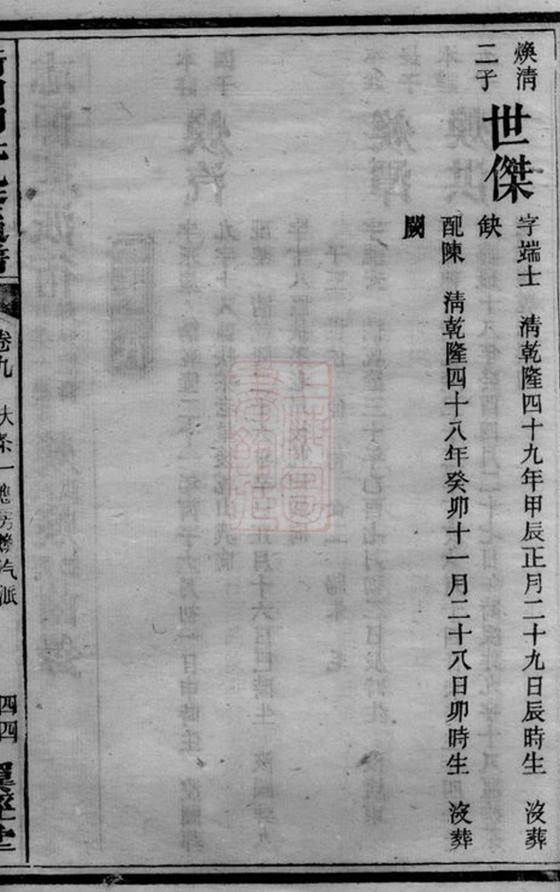 煥清
二子
世傑
字端士 清乾隆四十九年甲辰正月二十九日辰時生 沒葬
缺
配陳 清乾隆四十八年癸卯十一月二十八日卯時生 沒葬
闕
卷九
四四